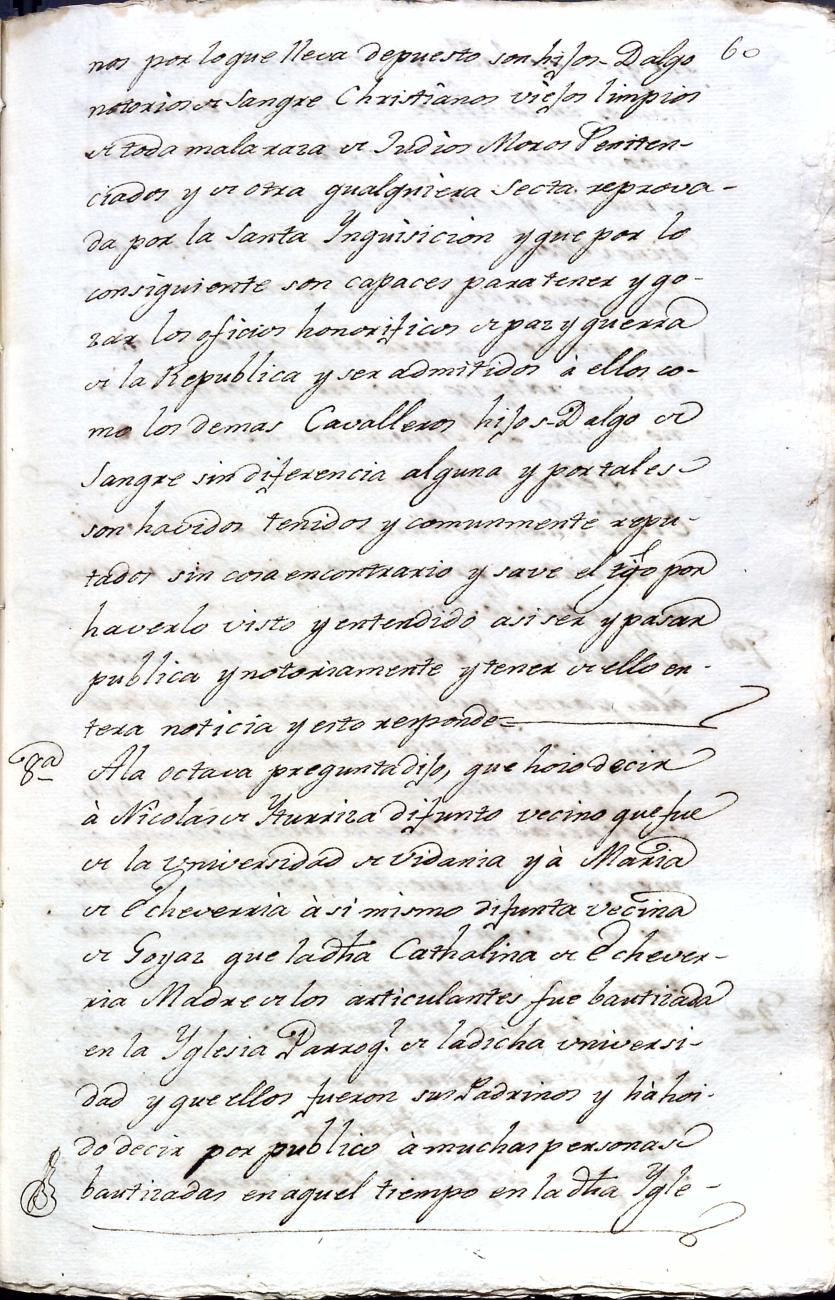 60
nos por lo que lleva depuesto son hijos-Dalgo
notorios de sangre Christianos viejos limpios
de toda mala raza de Judios Moros Peniten-
ciados y de otra qualquiera secta reprova-
da por la santa Ynquisicion y que por lo
consiguiente son capaces para tener y go-
zar los oficios honorificos de paz y guerra
de la Republica y ser admitidos à ellos co-
mo los demas Cavalleros hijos-Dalgo de
sangre sin diferencia alguna y por tales
son havidos tenidos y comunmente repu-
tados sin cosa en contrario y save el tgô por
haverlo visto y entendido asi ser y pasar
publica y notoriamente y tener de ello en-
tera noticia y esto responde=
8ª Ala octava pregunta dijo, que hoio decir
à Nicolas de Yturriza difunto vecino que fue
de la vniversidad de vidania y à Maria
de Echeverria àsi mismo difunta vecina
de Goyaz que la dhâ Cathalina de Echever-
ria Madre de los articulantes fue bautizada
en la Yglesia Parroq.l de la dicha vniversi-
dad y que ellos fueron sus Padrinos y hà hoi-
do decir por publico à muchas personas
bautizadas en aquel tiempo en la dhâ Ygle-